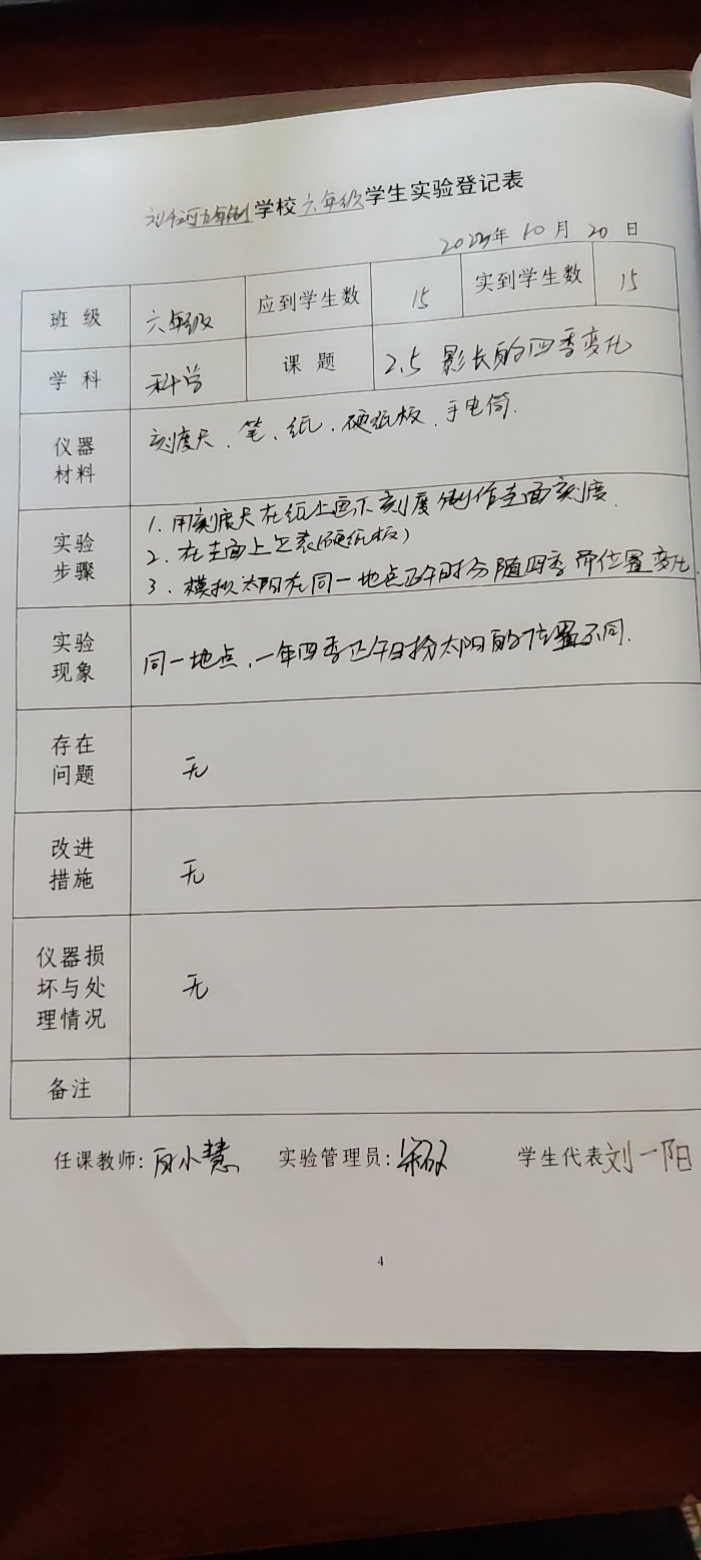 学校六年级学生实验登记表
年10月20日
班级 六年级 应到学生数 15 实到学生数 15
学科 科学 课题 2.5 影长的四季变化
仪器材料 刻度尺、笔、纸、硬纸板、手电筒.
实验步骤 1.用刻度尺在纸上画下刻度制作圭面刻度.
2.在圭面上立表(硬纸板)
3.模拟太阳在同一地点正午时分随四季 位置变化.
实验现象 同一地点,一年四季正午时分太阳的位置不同.
存在问题 无
改进措施 无
仪器损坏与处理情况 无
备注
任课教师: 小慧 实验管理员: 学生代表刘一阳
4